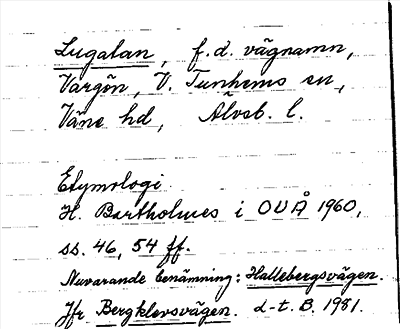 Lugatan, f.d. vägnamn,
Vargön, V. Tunhems sn,
Väne hd, Älvsb. l.
Etymologi
H. Bartholmes i OUÅ 1960,
ss. 46, 54 ff.
Nuvarande benämning: Hallebergsvägen.
Jfr Bergklevsvägen. d-t. B. 1981.